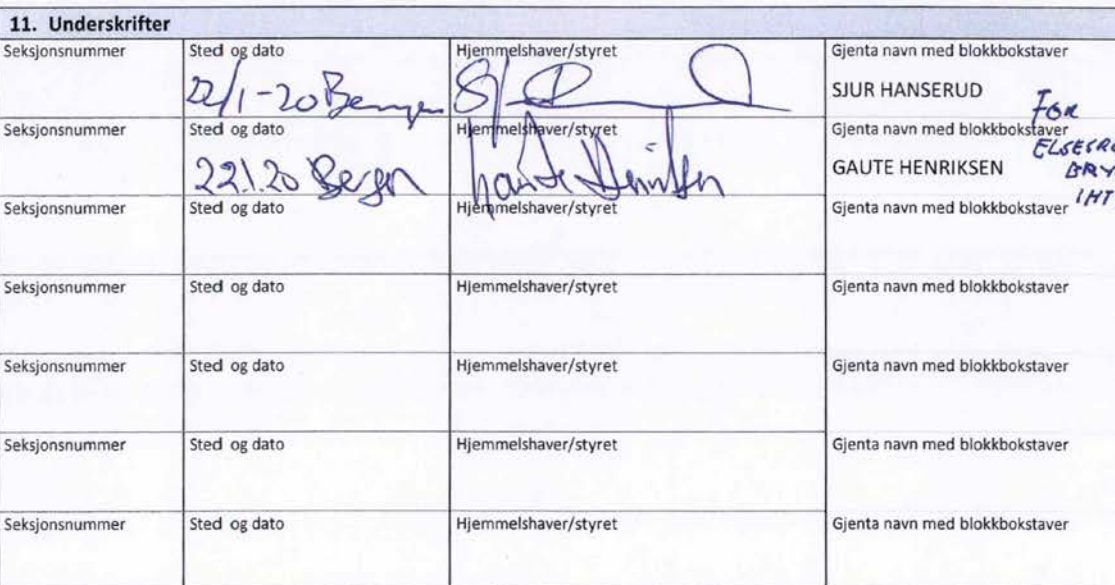 11. Underskrifter
Seksjonsnummer Sted og dato Hjemmelshaver/styret Gjenta navn med blokkbokstaver
22/1-20 Bergen SJUR HANSERUD
FOR
Seksjonsnummer Sted og dato Hjemmelshaver/styret Gjenta navn med blokkbokstaver
22.1.20 Bergen Gaute Henriksen GAUTE HENRIKSEN
Seksjonsnummer Sted og dato Hjemmelshaver/styret Gjenta navn med blokkbokstaver
Seksjonsnummer Sted og dato Hjemmelshaver/styret Gjenta navn med blokkbokstaver
Seksjonsnummer Sted og dato Hjemmelshaver/styret Gjenta navn med blokkbokstaver
Seksjonsnummer Sted og dato Hjemmelshaver/styret Gjenta navn med blokkbokstaver
Seksjonsnummer Sted og dato Hjemmelshaver/styret Gjenta navn med blokkbokstaver